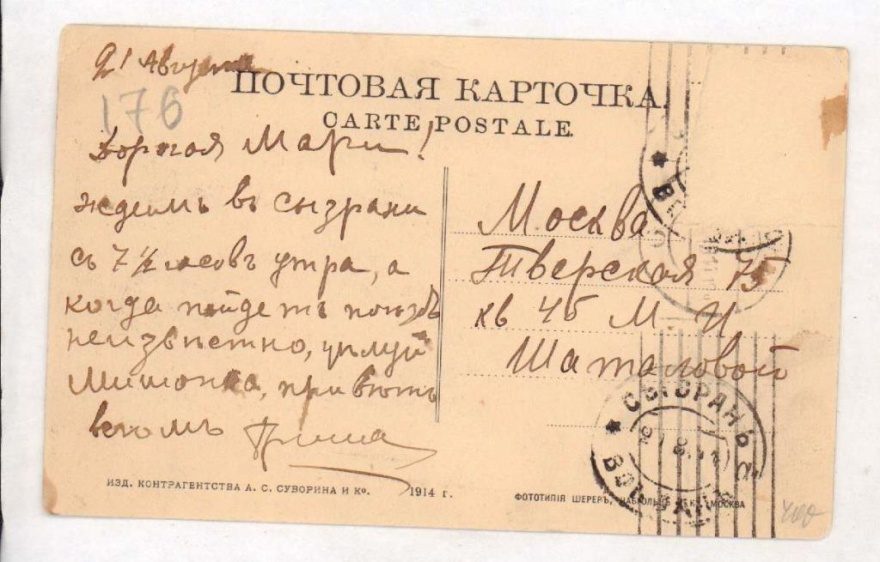 21 Августа
176
ПОЧТОВАЯ КАРТОЧКА.
CARTE POSTALE.
Дорогая Мари!
ждемъ въ Сызрани
съ 7 1/2 часовъ утра, а
когда пойдетъ поѣздъ
неизвѣстно, цѣлуй
привѣтъ
всѣмъ Гриша
Москва
Тверская 75
кв 45 М И
Шаталовой
СЫЗРАНЬ
ИЗД. КОНТРАГЕНТСТВА А. С. СУВОРИНА И Кº. 1914 г.
ФОТОТИПІЯ ШЕРЕРЪ, НАБГОЛЬЦЪ И Кº. МОСКВА
400